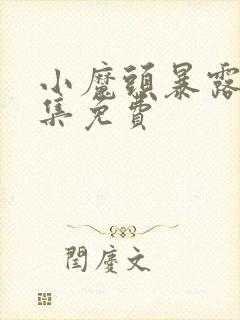 小魔頭暴露
集免費
閆慶文